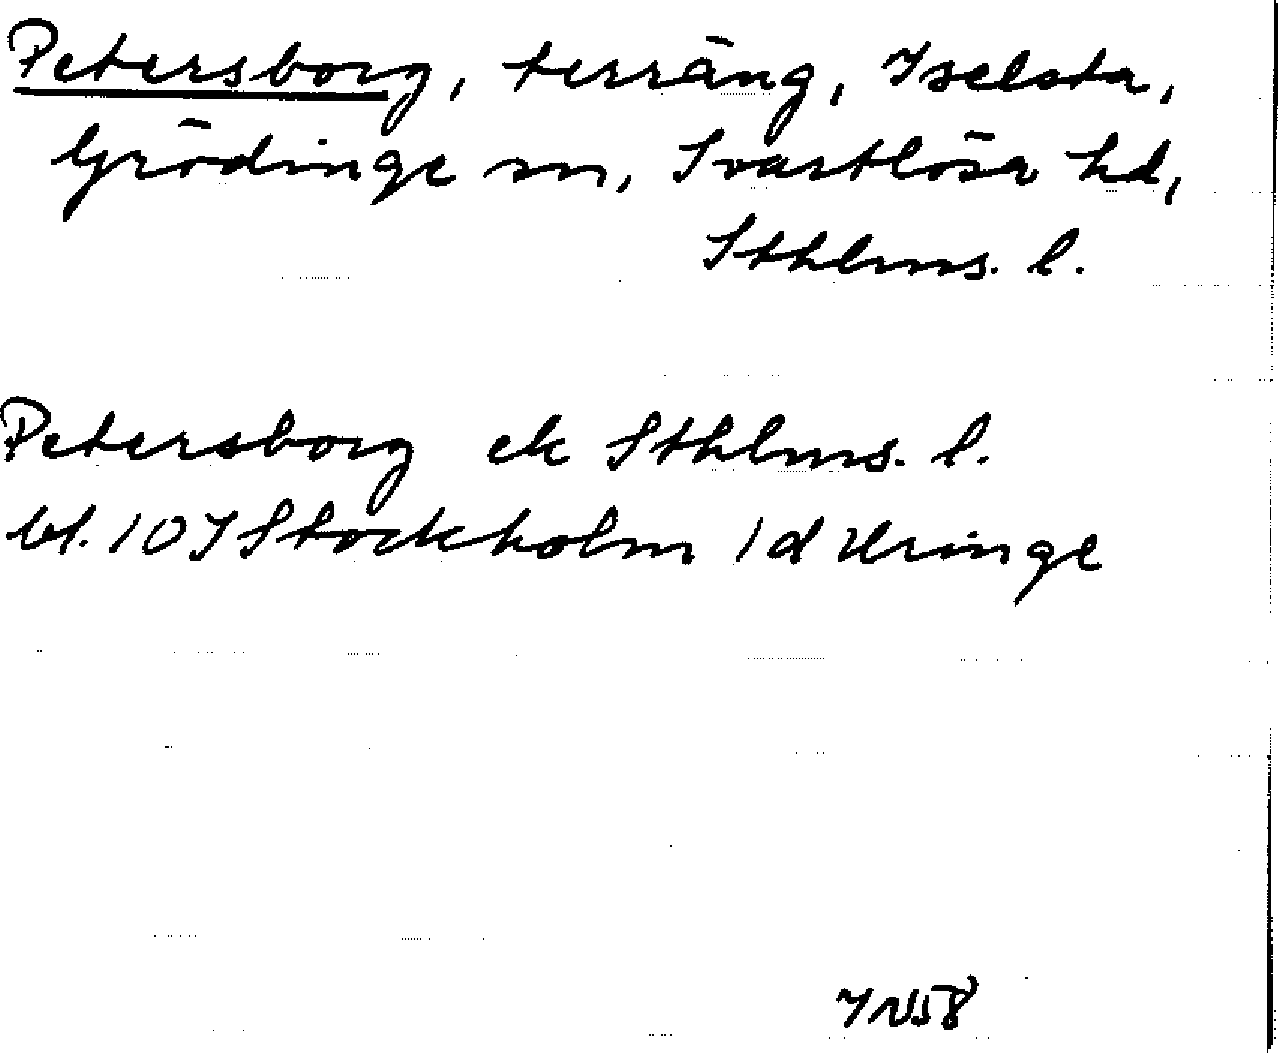 Petersborg, terräng, Iselsta,
Grödinge sn, Svartlösa hd,
Sthlms. l.
Petersborg ek Sthlms. l.
bl. 10I Stockholm 1d Uringe